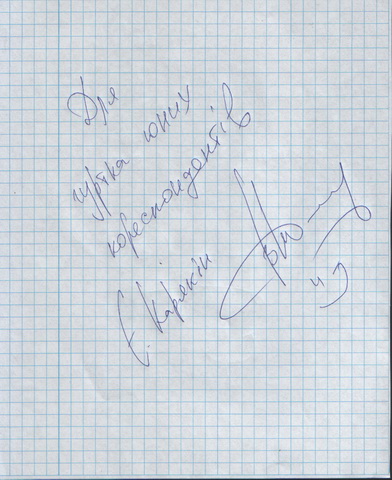 Для
гуртка юних
кореспондентів
Є. Карякін